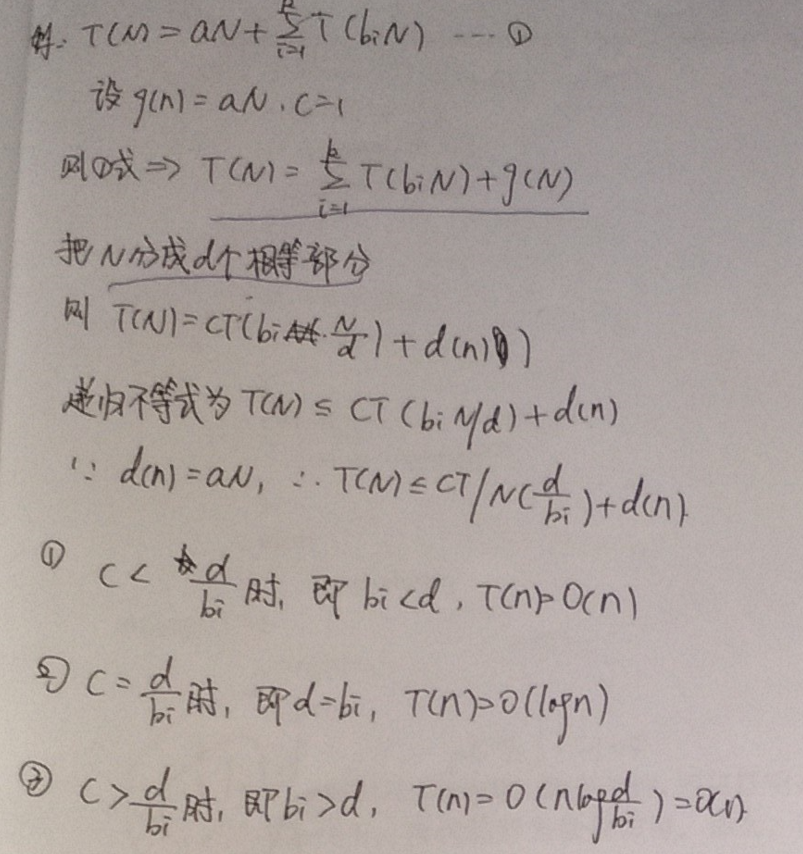 解: T(N) = aN + \sum_{i=1}^{k} T(biN) ---- ①
设 g(n) = aN, c=1
则①式 ⇒ T(N) = \sum_{i=1}^{k} T(biN) + g(N)
把N分成d个相等部分
则 T(N) = CT(bi·\frac{N}{d}) + d(n))
递归不等式为 T(N) ≤ CT(bi N/d) + d(n)
∵ d(n) = aN, ∴ T(N) ≤ CT/N(\frac{d}{bi}) + d(n)
① C < \frac{d}{bi} 时, 即 bi < d, T(n) = O(n)
② C = \frac{d}{bi} 时, 即 d = bi, T(n) = O(logn)
③ C > \frac{d}{bi} 时, 即 bi > d, T(n) = O(nlog\frac{d}{bi}) = O(n)